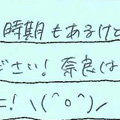 時期もあるけと
ださい！奈良は
こ！\(^o^)/